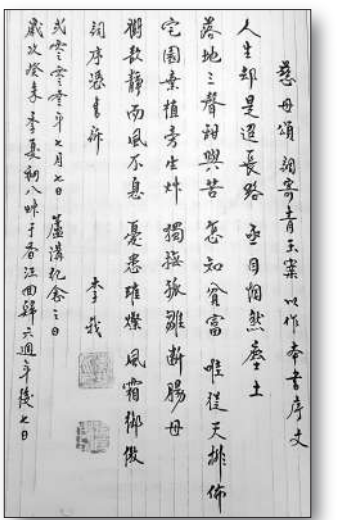 慈母頌 調寄青玉案 以作本書序文
人生却是迢長路 亟目惘然塵土
落地三聲甜與苦 怎知貧富 唯從天排佈
園 植旁生 獨 孤雛斷腸母
樹欲靜而風不息 憂患璀燦 風霜御傲
詞序憑書訴 李我
貳零零叁年七月七日 蘆溝紀念之日
歲次癸未季夏初八 時于香江回歸六週年後七日